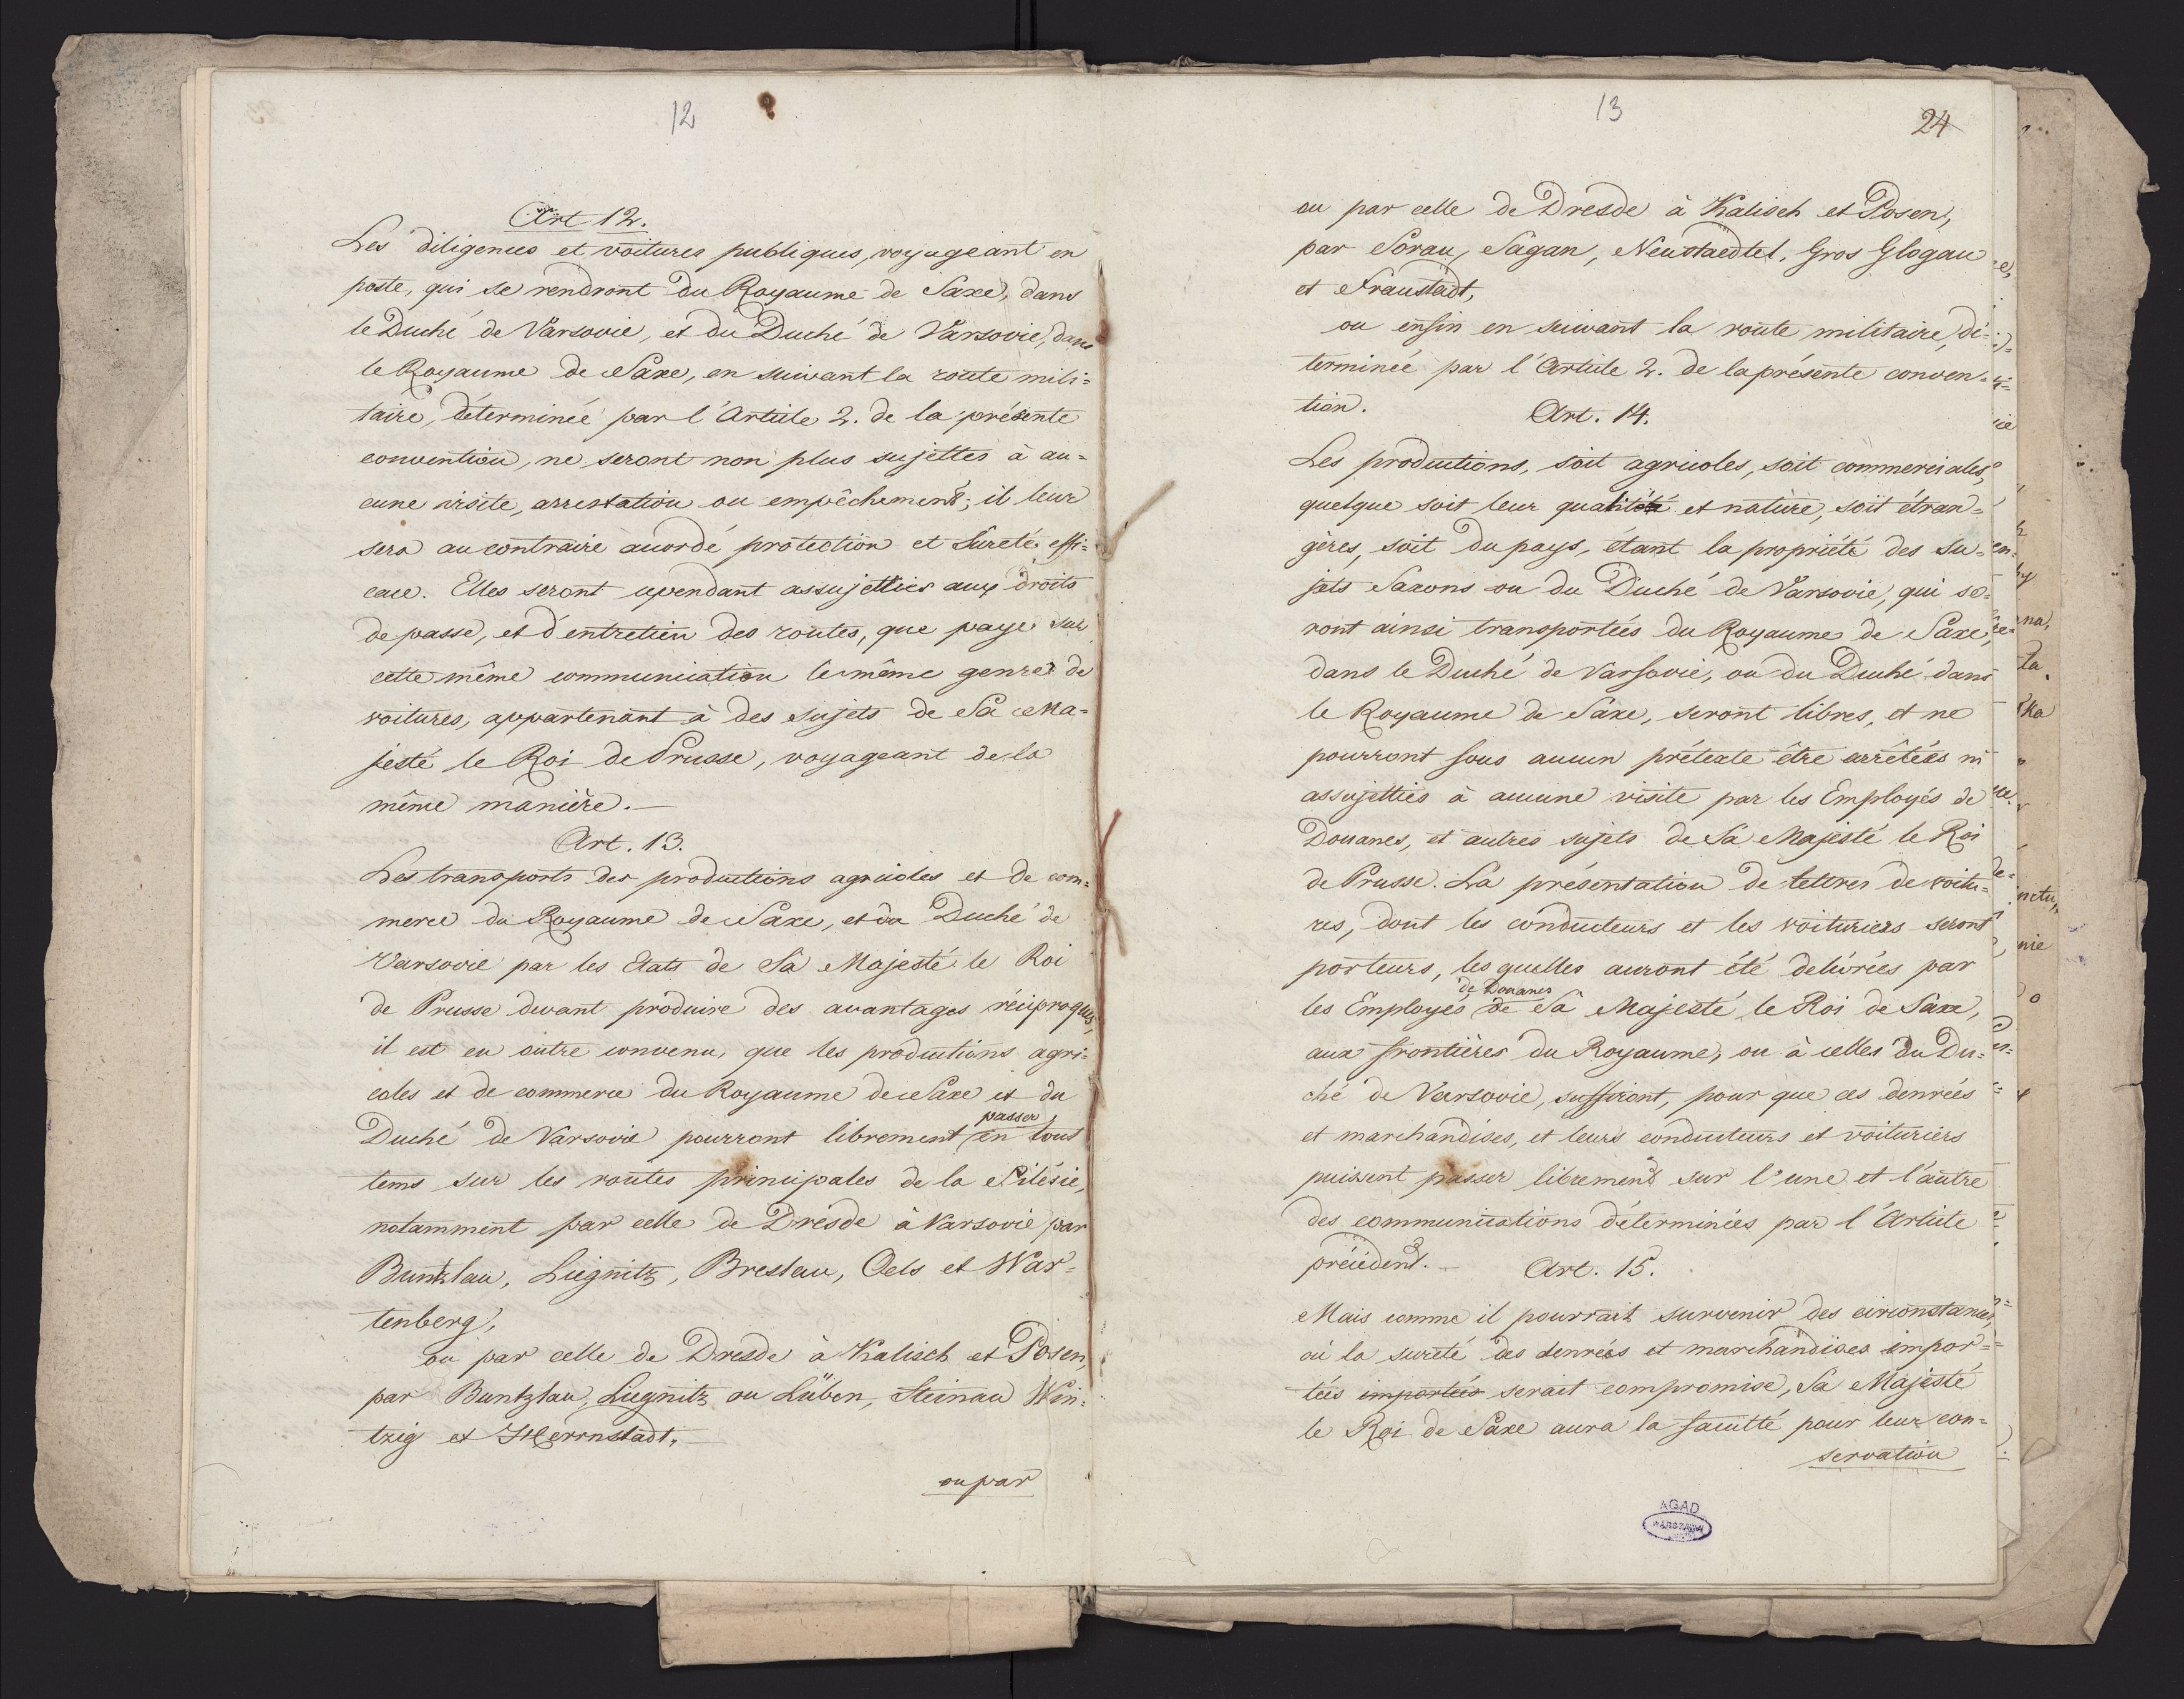 12
Art 12.
Les diligences et voitures publiques, voyageant en
poste, qui se rendront du Royaume de Saxe, dans
le Duché de Varsovie, et du Duché de Varsovie, dans
le Royaume de Saxe, en suivant la route mili=
taire, déterminée par l'Article 2. de la présente
convention, ne seront non plus sujettes à au=
cune visite, arrestation ou empêchement; il leur
sera au contraire accordé protection et sureté effi=
cace. Elles seront cependant assujetties aux droits
de passe, et d'entretien des routes, que paye sur
cette même communication le même genre de
voitures, appartenant à des sujets de Sa Ma=
jesté le Roi de Prusse, voyageant de la
même manière.—
Art. 13.
Les transports des productions agricoles et de com=
merce du Royaume de Saxe, et du Duché de
Varsovie par les Etats de Sa Majesté le Roi
de Prusse devant produire des avantages réciproques,
il est en outre convenu, que les productions agri=
coles et de commerce du Royaume de Saxe et du
passer
Duché de Varsovie pourront librement en tout
tems sur les routes principales de la Silésie,
notamment par celle de Dresde à Varsovie par
Buntzlau, Liegnitz, Breslau, Oels et War=
tenberg,
ou par celle de Dresde à Kalisch et Posen,
par Buntzlau, Liegnitz ou Lüben, Steinau Win=
tzig et Herrnstadt.—
ou par
13
24
ou par celle de Dresde à Kalisch et Posen,
par Sorau, Sagan, Neustaedtel, Gros Glogau
et Fraustadt,
ou enfin en suivant la route militaire, dé=
terminée par l'Article 2. de la présente conven=
tion.
Art. 14.
Les productions, soit agricoles, soit commerciales,
quelque soit leur qualité et nature, soit étran=
gères, soit du pays, étant la propriété des su=
jets Saxons ou du Duché de Varsovie, qui se=
ront ainsi transportées du Royaume de Saxe,
dans le Duché de Varsovie, ou du Duché dans
le Royaume de Saxe, seront libres, et ne
pourront sous aucun prétexte être arrêtées ni
assujetties à aucune visite par les Employés de
Douanes, et autres sujets de Sa Majesté le Roi
de Prusse. La présentation de lettres de voitu=
res, dont les conducteurs et les voituriers seront
porteurs, les quelles auront été delivrées par
de Douanes
les Employés de Sa Majesté le Roi de Saxe,
aux frontières du Royaume, ou à celles du Du=
ché de Varsovie, suffiront, pour que ces denrées
et marchandises, et leurs conducteurs et voituriers
puissent passer librement sur l'une et l'autre
des communications déterminées par l'Article
précédent.—
Art. 15.
Mais comme il pourrait survenir des circonstances,
où la sureté des denrées et marchandises impor=
tées importées serait compromise, Sa Majesté
le Roi de Saxe aura la faculté pour leur con=
servation
AGAD
WARSZAWA